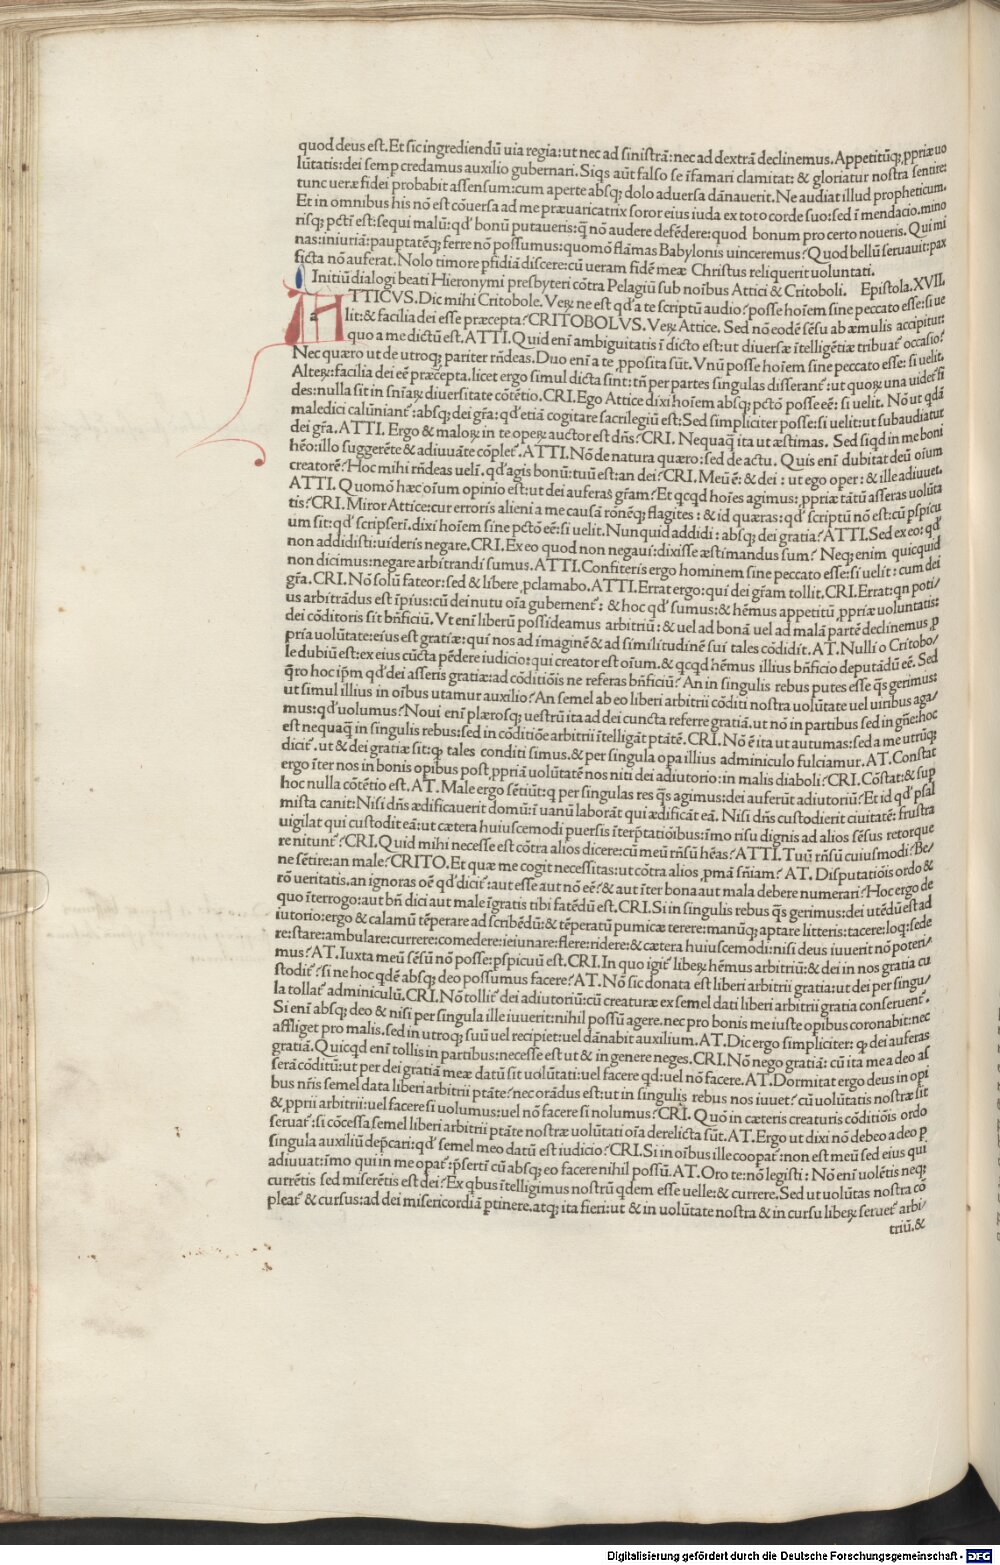 quod deus est. Et sic ingrediendū uia regia: ut nec ad sinistrā: nec ad dextrā declinemus. Appetitūq; ꝓpriæ uo
lūtatis: dei semp credamus auxilio gubernari. Siqs aūt falso se īfamari clamitat: & gloriatur nostra sentire:
tunc ueræ fidei probabit assensum: cum aperte absq; dolo aduersa dānauerit. Ne audiat illud propheticum.
Et in omnibus his nō est cōuersa ad me præuaricatrix soror eius iuda ex toto corde suo: sed ī mendacio. mino
risq; pcti est: sequi malū: qd' bonū putaueris: q̄ nō audere defēdere: quod bonum pro certo noueris. Qui mi
nas: iniuriā: pauptatēq; ferre nō possumus: quomō flāmas Babylonis uinceremus? Quod bellū seruauit: pax
ficta nō auferat. Nolo timore pfidiā discere: cū ueram fidē meæ Christus reliquerit uoluntati.
Initiū dialogi beati Hieronymi presbyteri cōtra Pelagiū sub noībus Attici & Critoboli. Epistola. XVII.
ATTICVS. Dic mihi Critobole. Veꝝ ne est qd' a te scriptū audio? posse hoīem sine peccato esse: si ue
lit: & facilia dei esse præcepta? CRITOBOLVS. Veꝝ Attice. Sed nō eodē sēsu ab æmulis accipitur:
quo a me dictū est. ATTI. Quid enī ambiguitatis ī dicto est: ut diuersæ ītelligētiæ tribuat' occasio?
Nec quæro ut de utroq; pariter rn̄deas. Duo enī a te ꝓposita sūt. Vnū posse hoīem sine peccato esse: si uelit.
Alteꝝ: facilia dei eē præcepta. licet ergo simul dicta sint: tn̄ per partes singulas disserant': ut quoꝝ una uidet' fi
des: nulla sit in sn̄iaꝝ diuersitate cōtētio. CRI. Ego Attice dixi hoīem absq; pctō posse eē: si uelit. Nō ut qdā
maledici calūniant': absq; dei gr̄a: qd' etiā cogitare sacrilegiū est: Sed simpliciter posse: si uelit: ut subaudiatur
dei gr̄a. ATTI. Ergo & maloꝝ in te opeꝝ auctor est dn̄s? CRI. Nequaq̄ ita ut æstimas. Sed siqd in me boni
hēo: illo suggerēte & adiuuāte cōplet'. ATTI. Nō de natura quæro: sed de actu. Quis enī dubitat deū oīum
creatorē? Hoc mihi rn̄deas uelī. qd' agis bonū: tuū est: an dei? CRI. Meū ē: & dei: ut ego oper: & ille adiuuet.
ATTI. Quomō hæc oīum opinio est: ut dei auferas gr̄am? Et qcqd hoīes agimus: ꝓpriæ tātū asseras uolūta
tis? CRI. Miror Attice: cur erroris alieni a me causā ronēq; flagites: & id quæras: qd' scriptū nō est: cū pspicu
um sit: qd' scripserī. dixi hoīem sine pctō eē: si uelit. Nunquid addidi: absq; dei gratia? ATTI. Sed ex eo: qd'
non addidisti: uideris negare. CRI. Ex eo quod non negaui: dixisse æstimandus sum? Neq; enim quicquid
non dicimus: negare arbitrandi sumus. ATTI. Confiteris ergo hominem sine peccato esse: si uelit: cum dei
gr̄a. CRI. Nō solū fateor: sed & libere ꝓclamabo. ATTI. Errat ergo: qui dei gr̄am tollit. CRI. Errat: qn poti/
us arbitrādus est īpius: cū dei nutu oīa gubernent': & hoc qd' sumus: & hēmus appetitū ꝓpriæ uoluntatis:
dei cōditoris sit bn̄ficiū. Vt enī liberū possideamus arbitriū: & uel ad bonā uel ad malā partē declinemus ꝓ
pria uolūtate: eius est gratiæ: qui nos ad imaginē & ad similitudinē sui tales cōdidit. AT. Nulli o Critobo/
le dubiū est: ex eius cūcta pēdere iudicio: qui creator est oīum. & qcqd hēmus illius bn̄ficio deputādū eē. Sed
q̄ro hoc ip̄m qd' dei asseris gratiæ: ad cōditiōis ne referas bn̄ficiū? An in singulis rebus putes esse q̄s gerimus:
ut simul illius in oībus utamur auxilio? An semel ab eo liberi arbitrii cōditi nostra uolūtate uel uiribus aga/
mus: qd' uolumus? Noui enī plærosq; uestrū ita ad dei cuncta referre gratiā. ut nō in partibus sed in gn̄e: hoc
est nequaq̄ in singulis rebus: sed in cōditiōe arbitrii ītelligāt ptātē. CRI. Nō ē ita ut autumas: sed a me utrūq;
dicit'. ut & dei gratiæ sit: ꝙ tales conditi simus. & per singula opa illius adminiculo fulciamur. AT. Constat
ergo īter nos in bonis opibus post ꝓpriā uolūtatē nos niti dei adiutorio: in malis diaboli? CRI. Cōstat: & sup
hoc nulla cōtētio est. AT. Male ergo sētiūt: ꝙ per singulas res q̄s agimus: dei auferūt adiutoriū? Et id qd' psal
mista canit: Nisi dn̄s ædificauerit domū: ī uanū laborāt qui ædificāt eā. Nisi dn̄s custodierit ciuitatē: frustra
uigilat qui custodit eā: ut cætera huiuscemodi puersis īterp̄tatiōibus: īmo risu dignis ad alios sēsus retorque
re nitunt'? CRI. Quid mihi necesse est cōtra alios dicere: cū meū rn̄sū hēas? ATTI. Tuū rn̄sū cuiusmodi? Be/
ne sētire: an male? CRITO. Et quæ me cogit necessitas: ut cōtra alios ꝓmā sn̄iam? AT. Disputatiōis ordo &
rō ueritatis. an ignoras oē qd' dicit': aut esse aut nō eē? & aut īter bona aut mala debere numerari? Hoc ergo de
quo īterrogo: aut bn̄ dici aut male īgratis tibi fatēdū est. CRI. Si in singulis rebus q̄s gerimus: dei utēdū est ad
iutorio: ergo & calamū tēperare ad scribēdū: & tēperatū pumicæ terere: manūq; aptare litteris: tacere: loq: sede
re: stare: ambulare: currere: comedere: ieiunare: flere: ridere: & cætera huiuscemodi: nisi deus iuuerit nō poteri/
mus? AT. Iuxta meū sēsū nō posse: pspicuū est. CRI. In quo igit' libeꝝ hēmus arbitriū: & dei in nos gratia cu
stodit'? si ne hoc qdē absq; deo possumus facere? AT. Nō sic donata est liberi arbitrii gratia: ut dei per singu/
la tollat' adminiculū. CRI. Nō tollit' dei adiutoriū: cū creaturæ ex semel dati liberi arbitrii gratia conseruent'.
Si enī absq; deo & nisi per singula ille iuuerit: nihil possū agere. nec pro bonis me iuste opibus coronabit: nec
affliget pro malis. sed in utroq; suū uel recipiet: uel dānabit auxilium. AT. Dic ergo simpliciter: ꝙ dei auferas
gratiā. Quicqd enī tollis in partibus: necesse est ut & in genere neges. CRI. Nō nego gratiā: cū ita me a deo as
serā cōditū: ut per dei gratiā meæ datū sit uolūtati: uel facere qd: uel nō facere. AT. Dormitat ergo deus in opi
bus nr̄is semel data liberi arbitrii ptāte? nec orādus est: ut in singulis rebus nos iuuet? cū uolūtatis nostræ sit
& ꝓprii arbitrii: uel facere si uolumus: uel nō facere si nolumus? CRI. Quō in cæteris creaturis cōditiōis ordo
seruat': si cōcessa semel liberi arbitrii ptāte nostræ uolūtati oīa derelicta sūt. AT. Ergo ut dixi nō debeo a deo p
singula auxiliū dep̄cari: qd' semel meo datū est iudicio? CRI. Si in oībus ille coopat': non est meū sed eius qui
adiuuat: īmo qui in me opat': p̄sertī cū absq; eo facere nihil possū. AT. Oro te: nō legisti: Nō enī uolētis neq;
currētis sed miserētis est dei? Ex qbus ītelligimus nostrū qdem esse uelle: & currere. Sed ut uolūtas nostra cō
pleat' & cursus: ad dei misericordiā ptinere. atq; ita fieri: ut & in uolūtate nostra & in cursu libeꝝ seruet' arbi/
triū. &
Digitalisierung gefördert durch die Deutsche Forschungsgemeinschaft - DFG